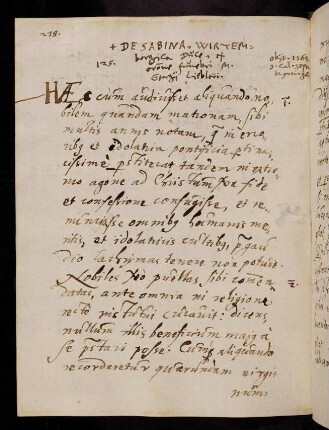 218.
+ DE SABINA. WIRTEM=
bergica Duce. +
125. oratione funebri M.
Georgij Liebleri.
Obijt 1564
3. Cal. Sept.
Hæc cum audiuisset aliquando no,
bilem quandam matronam, sibi
multis annis notam, q in erro,
ribq et idolatria pontificia ptina,
cissime pstiterat tandem in extre,
mo agone ad Christum Xra fide
et confessione confugisse, et re,
nunciasse omnibq humanis me,
ritis, et idolatricis cultibq, p gau
dio lachrymas tenere non potuit.
Nobiles vo puellas sibi comen
datas, ante omnia in religione
recte institui curauit: dicens,
nullum illis beneficium maiq à
se pstari posse. Cumq aliquando
recordaretur quarundam virgi
num